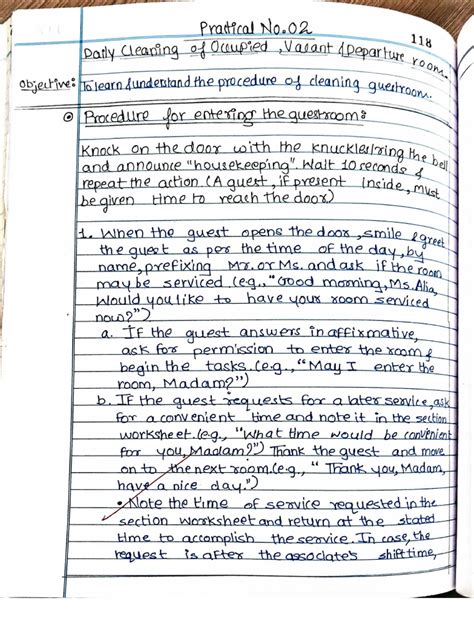 Pratical No.02
118
Daily Cleaning of Occupied, Vacant & Departure room.
Objective: To learn & understand the procedure of cleaning guestroom.
Procedure for entering the guestroom:
Knock on the door with the knuckles/ring the bell
and announce "housekeeping". Wait 10 seconds &
repeat the action (A guest, if present inside, must
be given time to reach the door)
1. When the guest opens the door, smile & greet
the guest as per the time of the day, by
name, prefixing Mr. or Ms. and ask if the room
may be serviced (eg., "Good morning, Ms. Alia,
Would you like to have your room serviced
now?")
a. If the guest answers in affirmative,
ask for permission to enter the room &
begin the tasks. (e.g., "May I enter the
room, Madam?")
b. If the guest requests for a later service, ask
for a convenient time and note it in the section
worksheet. (eg., "What time would be convenient
for you, Madam?") Thank the guest and move
on to the next room. (e.g., "Thank you, Madam,
have a nice day.")
• Note the time of service requested in the
section worksheet and return at the stated
time to accomplish the service. In case, the
request is after the associate's shift time,